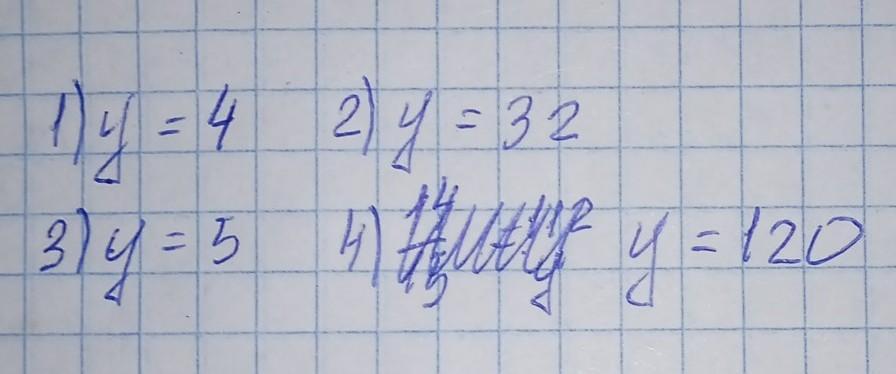 1) y = 4 2) y = 32
3) y = 5 4) y = 120